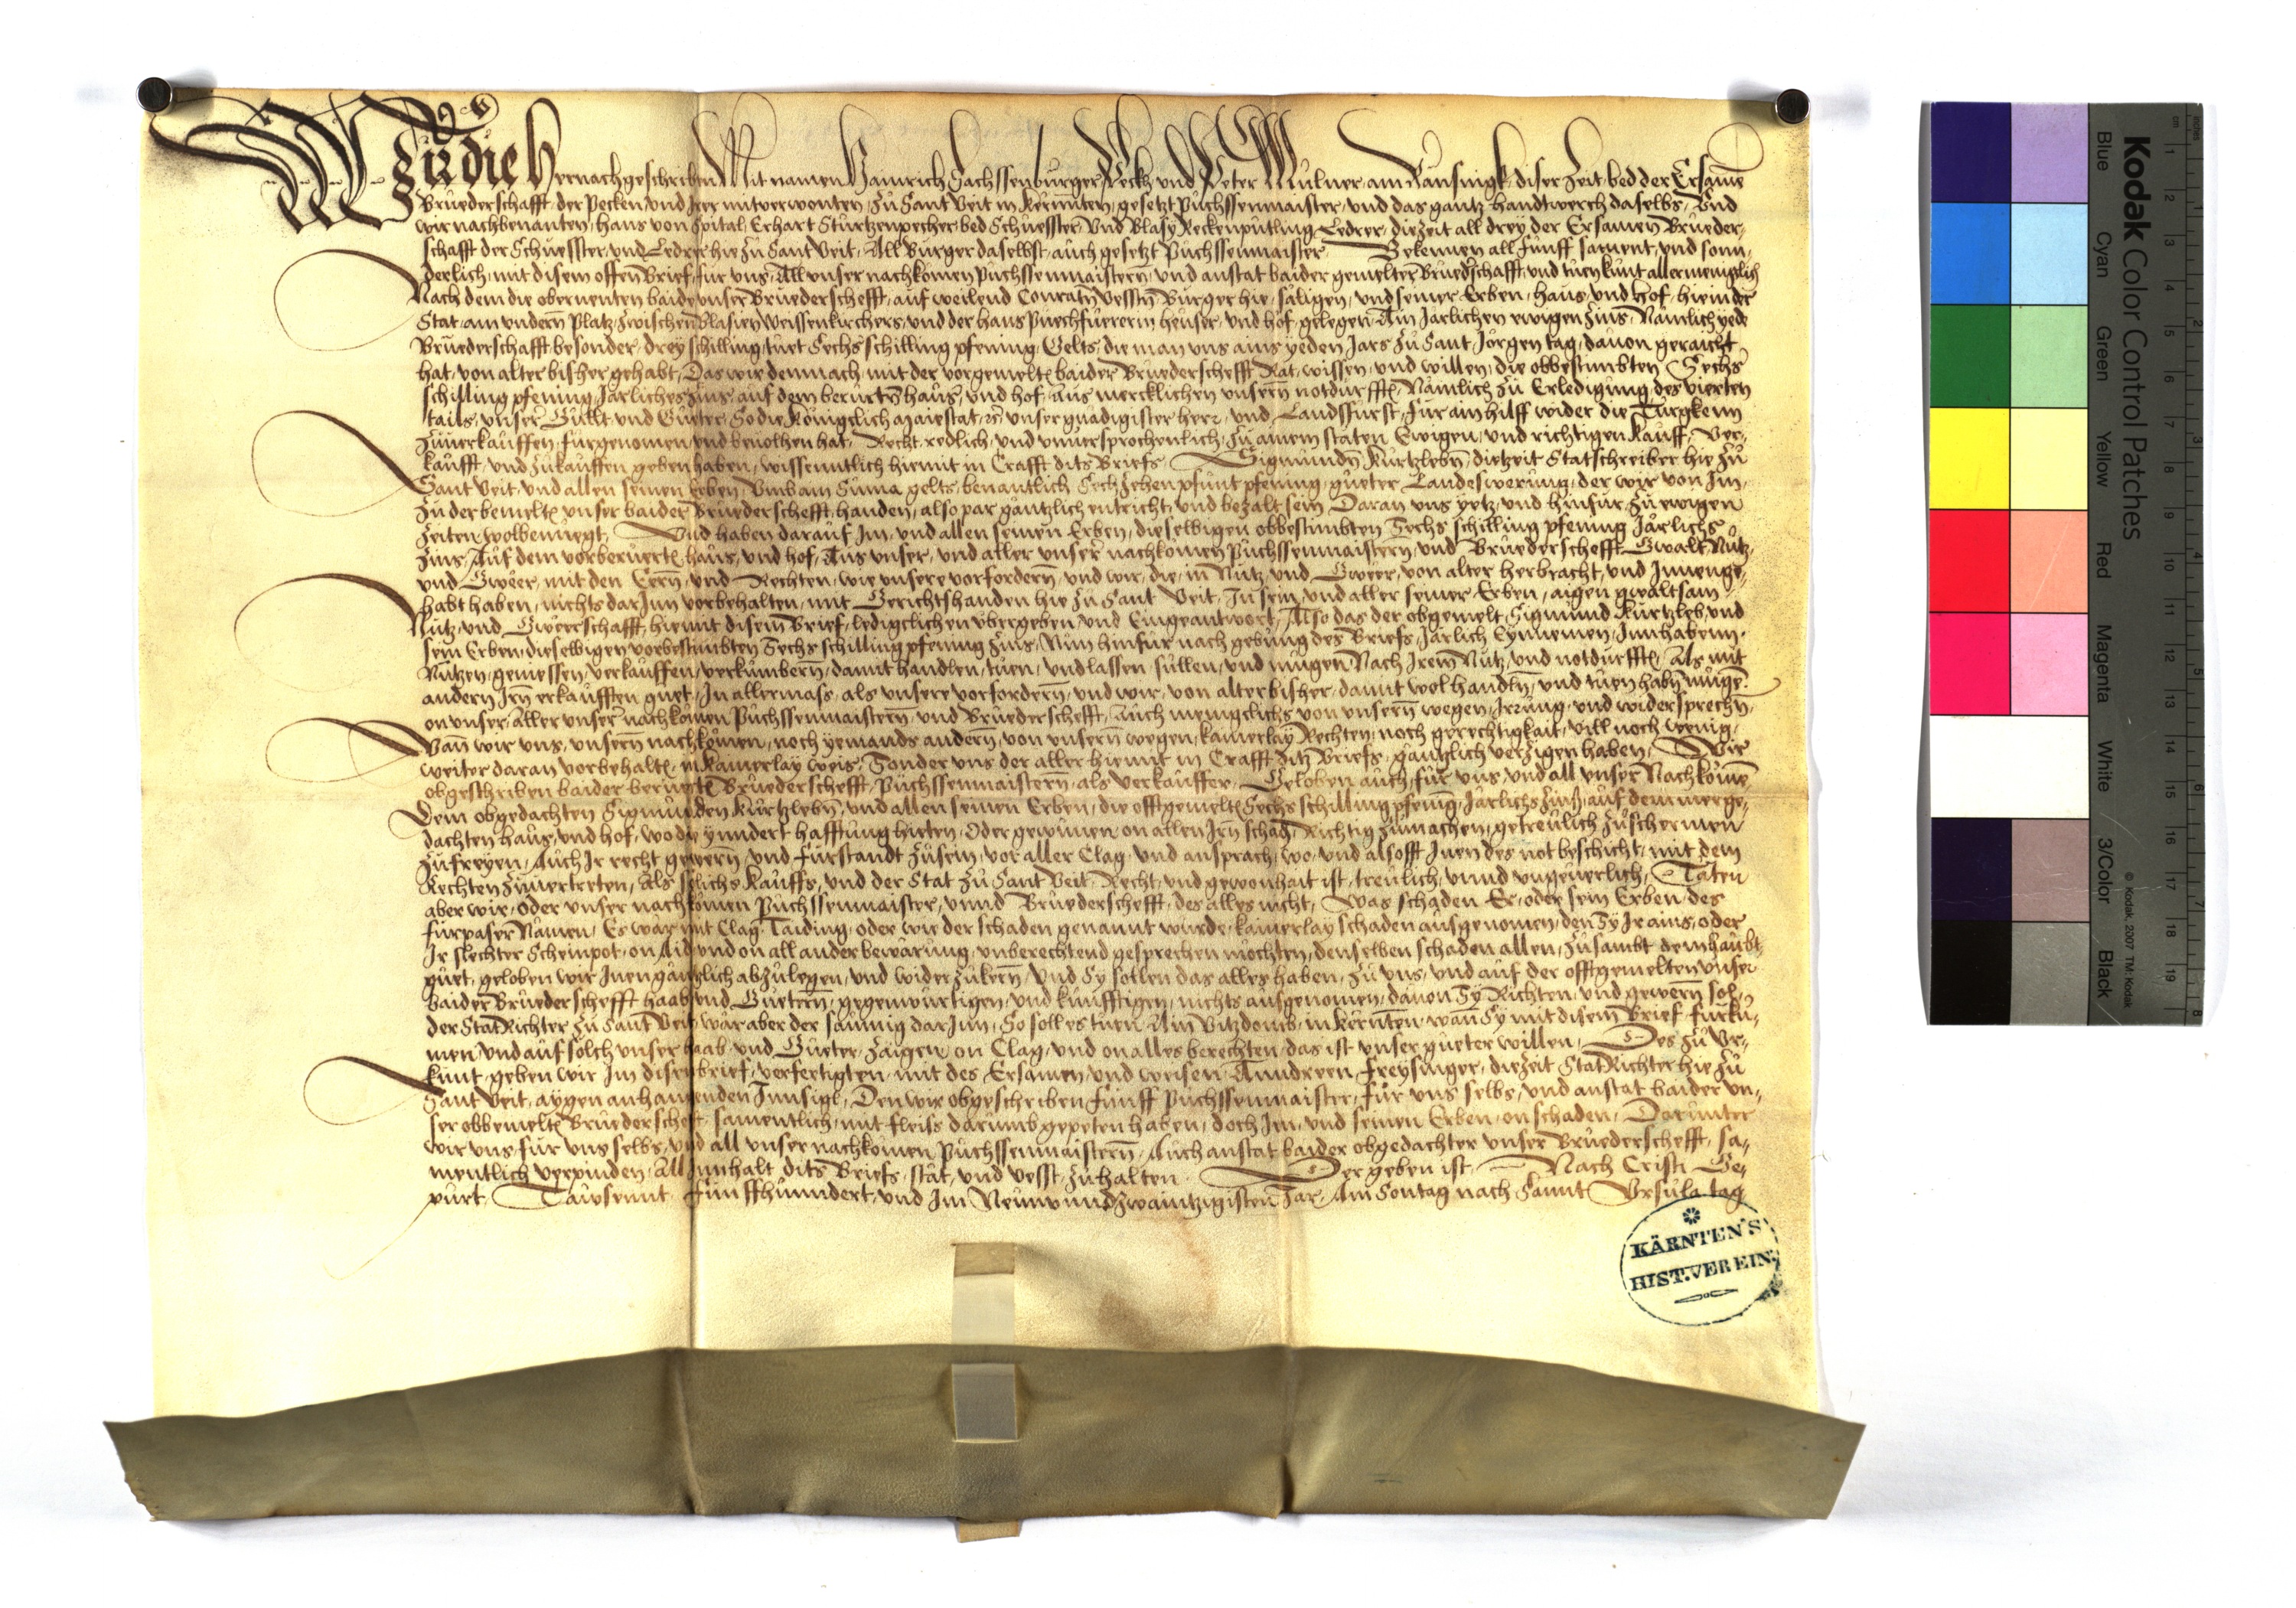 Wir die hernachgeschriben Mit namen Hainrich Sachssenburger Peckh und Peter Mülner am diser Zeit bed der Ersame
Brüederschafft der Pecken und Irer mitverwonten zu Sant Veit in Kernnten gesetzt Püchssenmaister und das gantz handtwerch daselbs Und
wir nachbenanten Hans von Spital Erhart Stürtzenpecher bed Schuesster Und Blasy Reckenpütling Ledrer diezeit all drey der Ersamen Brüeder
schafft der Schuesster und Ledrer hie zu Sant Veit All Burger daselbst auch gesetzt Püchssenmaister Bekennen all fünff sament und sonn
derlich mit disem offen Brief für uns All unser nachkomen Püchssenmaistern und anstat baider gemelter Brüederschafft und tuen kunt allermenigclich
Nach dem die obernenten baide unser Brüederschefft auf weilend Conratn Vesstn Burger hie säligen und seiner Erben haus und hof hie in der
Stat am undern Platz zwischen Blasien Weissenkirchers und der hans Puechfüererin heuser und hof gelegen Ain Järlichen ewigen zins Nämlich yede
Brüederschafft besonder drey schilling tuet Sechs schilling pfening Gelts die man uns ains yeden Jars zu Sant Jörgen tag davon geraicht
hat von alter bisher gehabt Das wir demnach mit der vorgemelten baider Brüederschefft Rat wissen und willen die obbestimbten Sechs
schilling pfening Järliches zins auf dem berürtn haus und hof Aus mercklichen unsern notdurfften Nämlich zu Erledigung des vierten
tails unser Güllt und Güeter So die Königclich Maiestat unser gnädigister herr und Landsfürst für ain hilff wider die Türgken
zuverkauffen fürgenomen und bevolhen hat Recht redlich und unwersprochenlich zu ainem stäten Ewigen und richtigen Kauff Ver
kaufft und zukauffen geben haben wissenntlich hiemit in Crafft dits Briefs Sigmunden Kürtzlebn dietzeit Statschreiber hie zu
Sant Veit und allen seinen Erben Umb ain Suma gelts benantlich Sechzehen pfunt pfening güeter Landeswerung der wir von Im
zu der bemelten unser baider Brüederschefft handen also par gäntzlich entricht und bezalt sein Daran uns yetz und hinfür zu ewigen
zeiten wolbenüegt Und haben darauf Im und allen seinen Erben dieselbigen obbestimbten Sechs schilling pfening Järlichs
zins Auf dem vorberüertn haus und hof Aus unser und aller unser nachkomen Püchssenmaistern und Brüederschefft Gwalt Nütz
und Gwer mit den Eern und Rechten wie unsere vorfordern und wir die in Nutz und Gweer von alter herbracht und Innenge
habt haben nichts darInn vorbehalten mit Gerichtshanden hie zu Sant Veit In sein und aller seiner Erben aigen gwaltsam
Nutz und Gweerschafft hiemit disem Brief ledigclichen übergeben und Eingeantwort Also das der obgemelt Sigmund Kürtzleb und
sein Erben dieselbigen vorbestimbten Sechs schilling pfening zins Nun hinfür nach gebung des Briefs Järlich Eynnemen Innhaben
Nützen geniessen verkauffen verkumbern damit handlen tuen und lassen süllen und mügen Nach Irem Nutz und notdurfften Als mit
andern Irn erkaufften guet In allermass als unsere vorfordern und wir von alter bisher damit wol handln und tuen habn müge
on unser aller unser nachkomen Püchssenmaistern und Brüederschefft Auch menigclichs von unsern wegen Irrung und widersprechn
Wan wir uns unsern nachkomen noch yemands andern von unsern wegen kainerlay Rechten noch gerechtigkait vill noch wenig
weiter daran vorbehalten in kainerlay weis Sonder uns der aller hiemit in Crafft ditz Briefs gäntzlich verzigen haben Wir
obgeschriben baider berürten Brüederschefft Püchssenmaistern als verkauffer Geloben auch für uns und all unser Nachkome
Dem obgedachten Sigmunden Kürtzlebn und allen seinen Erben die offtgemelten Sechs schilling pfening Järlichs zins auf dem merge
dachten haus und hof wo die ynndert hafftung hieten Oder gewunnen on allen Irn schad Richtig zumachen getreulich zuschermen
zufreyen Auch Ir recht gewern und fürstandt zusein vor aller Clag und ansprach wo und alsofft Inen des not beschicht mit dem
Rechten zuvertreten Als solichs Kauffs und der Stat zu Sant Veit Recht und gewonhait ist treulich unnd ungeverlich Täten
aber wir oder unser nachkomen Püchssenmaister unnd Brüederschefft des alles nicht Was schaden Er oder sein Erben des
fürpaser Nämen Es wär mit Clag Taiding oder wie der schaden genannt wurde kainerlay schaden ausgenomen den Sy Ir ains oder
Ir slechter Scheinpot on Aid und on all ander bewärung unberechtend gesprechen möchten denselben schaden allen zusambt dem haubt
guet geloben wir Inen gäntzlich abzulegen und widerzukern Und Sy sollen das alles haben zu uns und auf der offtgemelten unser
baider Brüederschefft haab und Güetern gegenwürtigen und künfftigen nichts ausgenomen davon Sy Richten und gewern sol
der StatRichter zu Sant Veit wär aber der säumig darInn So soll es tuen Ain Vitzdomb in Kernten wan Sy mit disem Brief fürku
men und auf solch unser haab und Güeter zaigen on Clag und on alles berechten das ist unser güeter willen Des zu Ur
kunt geben wir Im disen brief verfertigten mit des Ersamen und weisen Anndreen Freysinger diezeit StatRichter hie zu
Sant Veit aygen anhangenden Innsigl Den wir obgeschriben fünff Püchssenmaister für uns selbs und anstat baider un
ser obbemelten Brüederschefft samentlich mit fleiss darumb gepeten haben doch Im und seinen Erben on schaden Darunter
wir uns für uns selbs und all unser nachkomen Püchssenmaistern Auch anstat baider obgedachter unser Brüederschefft sa
mentlich verpinden All Innhalt dits Briefs stät und vesst zuhalten Der geben ist Nach Cristi Ge
purt Tausennt Fünffhunndert und Im Neunundzwaintzigisten Jar Am Sontag nach Sannt Ursula tag
KÄRNTEN'S
HIST. VEREIN.
Kodak Color Control Patches
Blue Cyan Green Yellow Red Magenta White 3/Color Black
© Kodak, 2007 TM: Kodak
cm 1 2 3 4 5 6 7 8 9 10 11 12 13 14 15 16 17 18 19
inches 1 2 3 4 5 6 7 8